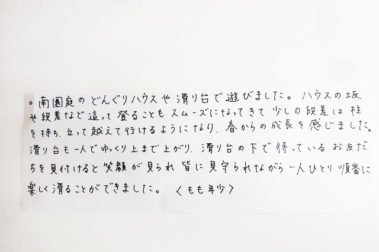 。南園庭のどんぐりハウスや滑り台で遊びました。ハウスの坂
や段差など這って登ることもスムーズになってきて少しの段差は柱
を持ち、立って越えて行けるようになり、春からの成長を感じました。
滑り台も一人でゆっくり上まで上がり、滑り台の下で待っているお友だ
ちを見付けると笑顔が見られ皆に見守られながら一人ひとり順番に
楽しく滑ることができました。〈もも年少〉